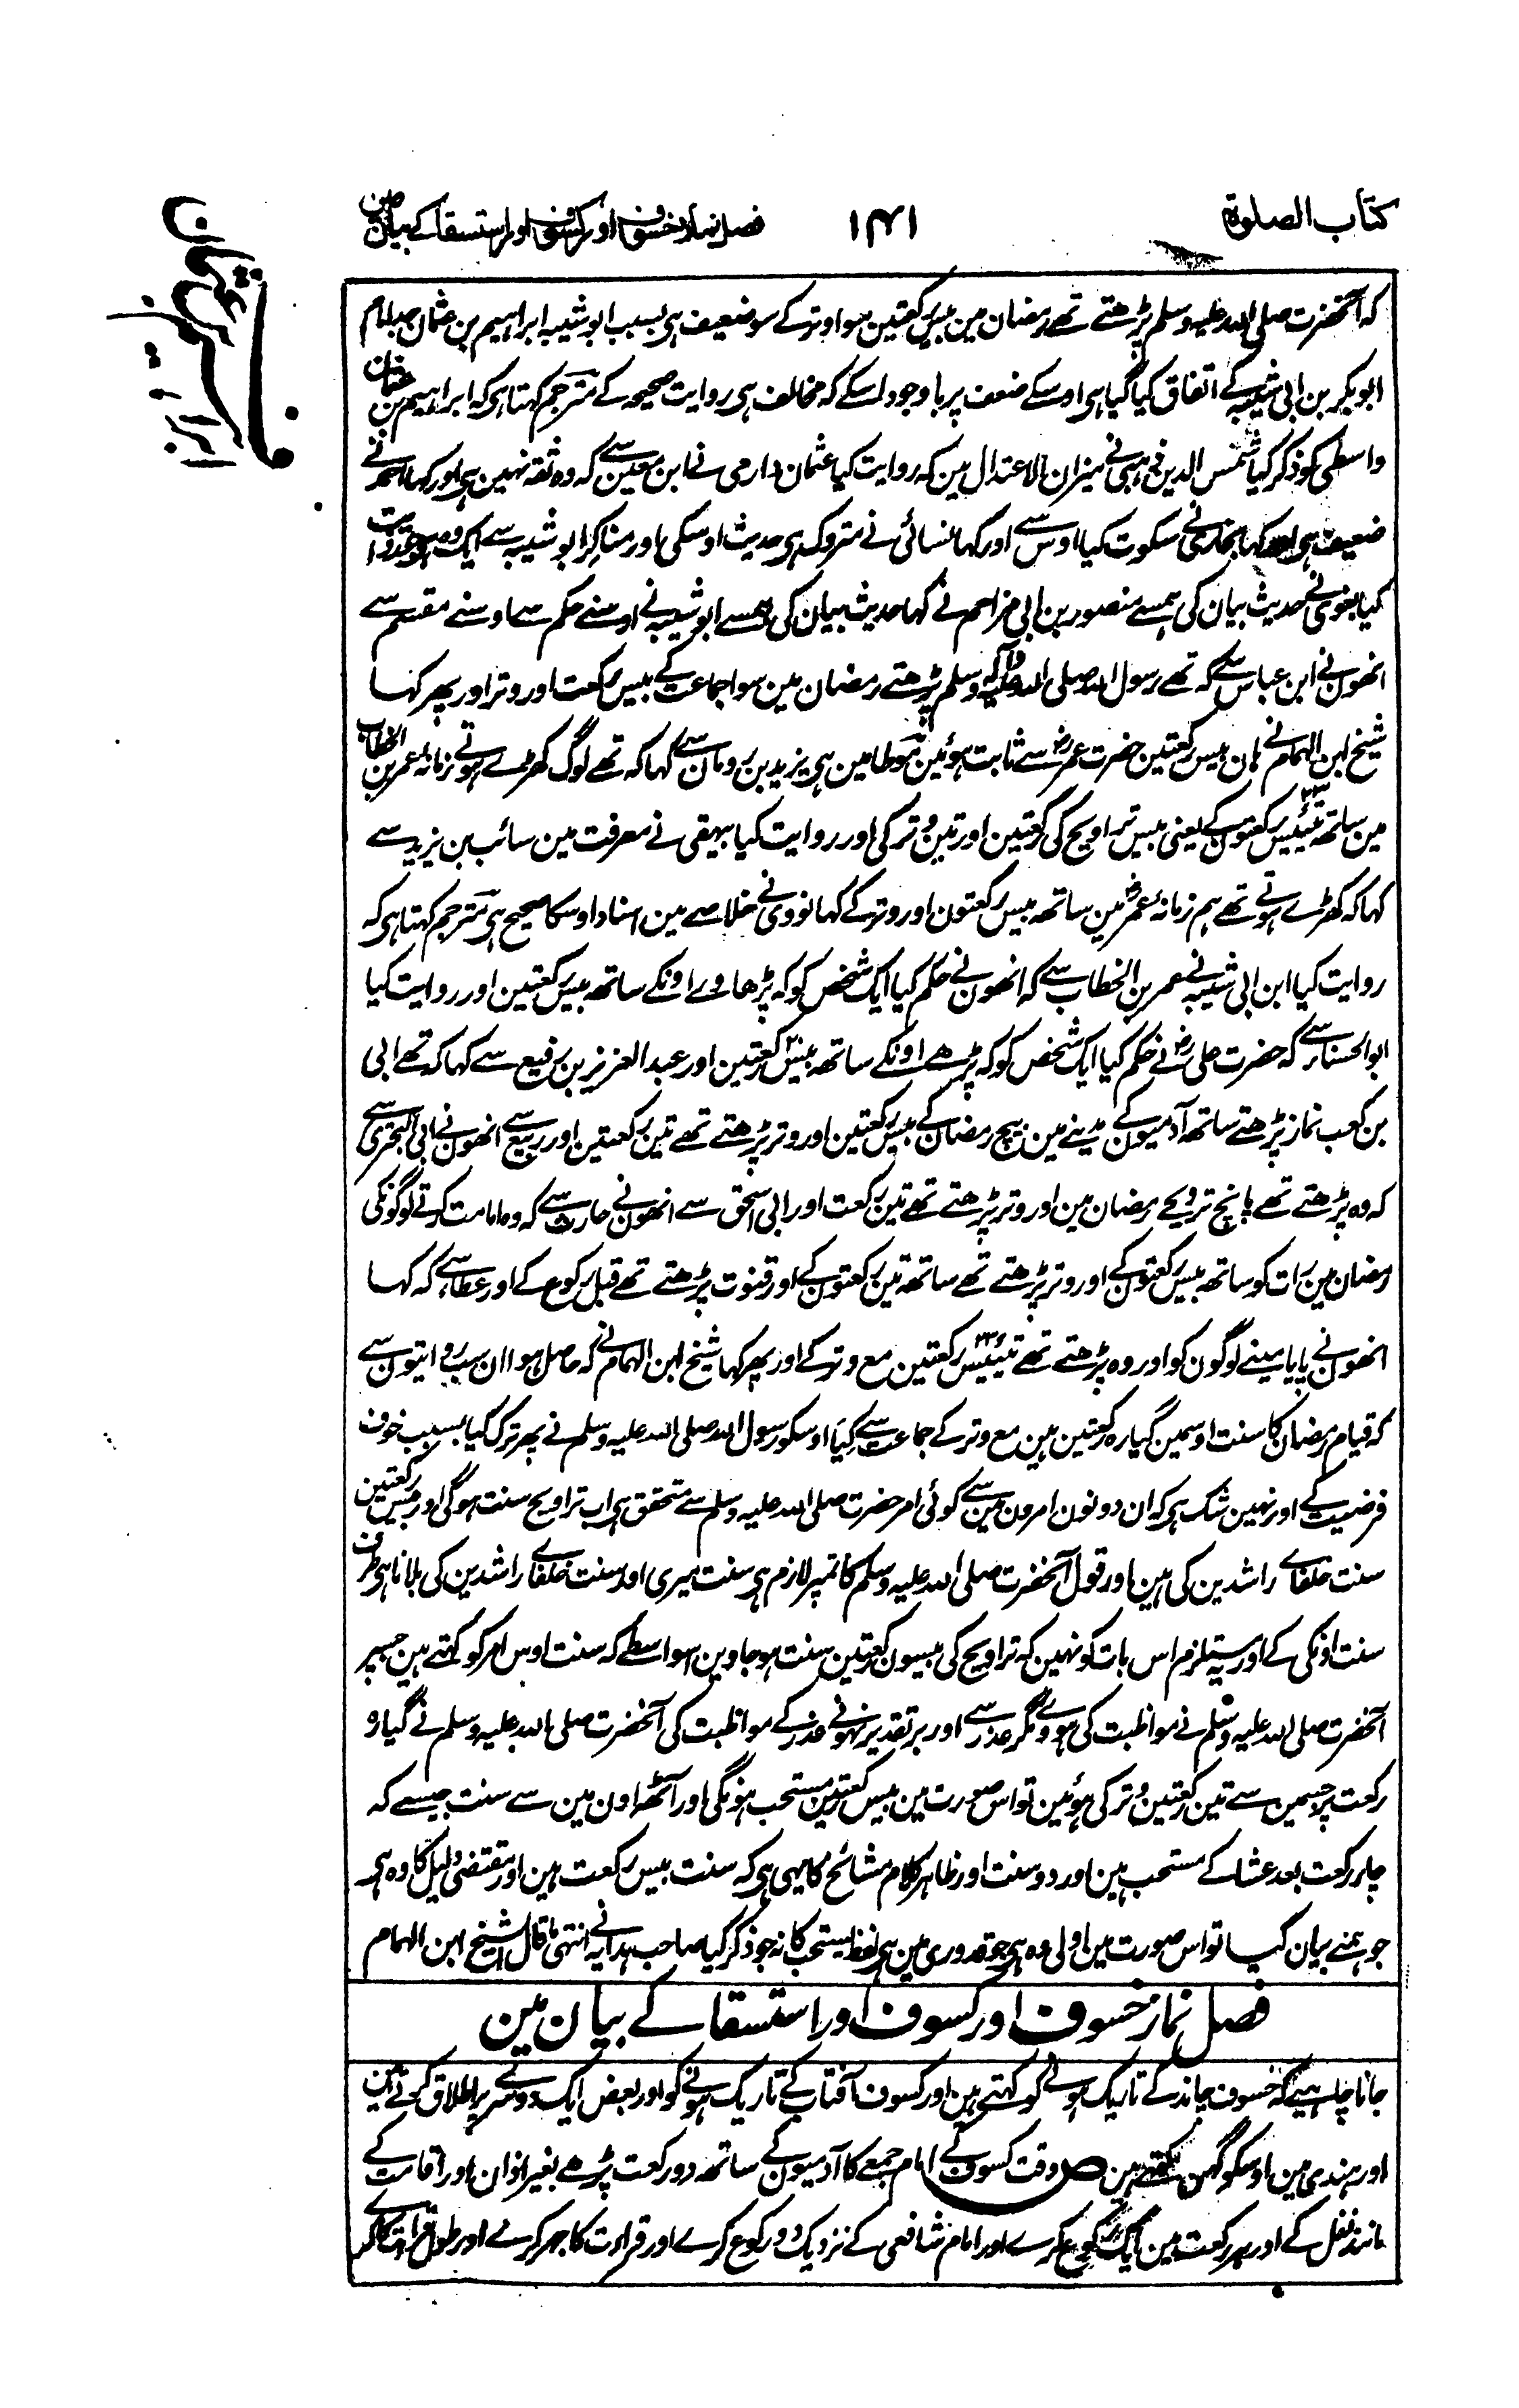 کتاب الصلوۃ
۱۴۱
فصل نماز خسوف اور کسوف اور استسقا کے بیان مین
کہ آنحضرت صلی اللہ علیہ وسلم پڑھتے تھے رمضان مین بیس رکعتین سوا وتر کے سو ضعیف ہی بسبب ابو شیبہ ابراہیم بن عثمان جد امام
ابو بکر بن ابی شیبہ کے اتفاق کیا گیا ہی اوسکے ضعف پر باوجود اسکے کہ مخالف ہی روایت صحیحہ کے مترجم کہتا ہی کہ ابراہیم بن عثمان
واسطی کو ذکر کیا شمس الدین ذہبی نے میزان الاعتدال مین کہ روایت کیا عثمان دارمی نے ابن معین سے کہ وہ ثقہ نہین ہی اور کہا احمد نے
ضعیف ہی اور کہا بخاری نے سکوت کیا اوس سے اور کہا نسائی نے متروک ہی حدیث اوسکی اور مناکر ابو شیبہ سے ایک وہ ہی جو روایت
کیا بغوی نے حدیث بیان کی ہمسے منصور بن ابی مزاحم نے کہا حدیث بیان کی ہمسے ابو شیبہ نے اوسنے حکم سے اوسنے مقسم سے
انھون نے ابن عباس سے کہ تھے رسول اللہ صلی اللہ علیہ وآلہ وسلم پڑھتے رمضان مین سوا جماعت کے بیس رکعت اور وتر اور پھر کہا
شیخ ابن الہمام نے ہان بیس رکعتین حضرت عمرؓ سے ثابت ہوئین موطا مین ہی یزید بن رومان سے کہا کہ تھے لوگ کھڑے ہوتے زمانہ عمر بن الخطاب
مین ساتھ تئیس ۲۳ رکعتون کے یعنی بیس تراویح کی رکعتین اور تین وتر کی اور روایت کیا بیہقی نے معرفت مین سائب بن یزید سے
کہا کہ کھڑے ہوتے تھے ہم زمانہ عمرؓ مین ساتھ بیس رکعتون اور وتر کے کہا نووی نے خلاصے مین اسناد اوسکا صحیح ہی مترجم کہتا ہی کہ
روایت کیا ابن ابی شیبہ نے عمر بن الخطاب سے کہ انھون نے حکم کیا ایک شخص کو کہ پڑھاوے اونکے ساتھ بیس رکعتین اور روایت کیا
ابو الحسناء سے کہ حضرت علیؓ نے حکم کیا ایک شخص کو کہ پڑھے اونکے ساتھ بیس رکعتین اور عبد العزیز بن رفیع سے کہا کہ تھے ابی
بن کعب نماز پڑھتے ساتھ آدمیون کے مدینے مین بیچ رمضان کے بیس رکعتین اور وتر پڑھتے تھے تین رکعتین اور ربیع سے انھون نے ابی البختری سے
کہ وہ پڑھتے تھے پانچ ترویحے رمضان مین اور وتر پڑھتے تھے تین رکعت اور ابی اسحٰق سے انھون نے حارث سے کہ وہ امامت کرتے لوگونکی
رمضان مین رات کو ساتھ بیس رکعتون کے اور وتر پڑھتے تھے ساتھ تین رکعتون کے اور قنوت پڑھتے تھے قبل رکوع کے اور عطا سے کہ کہا
انھون نے پایا مینے لوگون کو اور وہ پڑھتے تھے تیئیس ۲۳ رکعتین مع وتر کے اور پھر کہا شیخ ابن الہمام نے کہ حاصل ہوا ان سب روایتون سے
کہ قیام رمضان کا سنت اوسمین گیارہ رکعتین ہین مع وتر کے جماعت سے کیا اوسکو رسول اللہ صلی اللہ علیہ وسلم نے پھر ترک کیا بسبب خوف
فرضیت کے اور نہین شک ہی کہ ان دونون امرون مین سے کوئی امر حضرت صلی اللہ علیہ وسلم سے متحقق ہی اب تراویح سنت ہوگی اور بیس رکعتین
سنت خلفاے راشدین کی ہین اور قول آنحضرت صلی اللہ علیہ وسلم کا تمپر لازم ہی سنت میری اور سنت خلفاے راشدین کی بلانا ہی طرف
سنت اونکی کے اور یہ مستلزم اس بات کو نہین کہ تراویح کی بیسون رکعتین سنت ہو جاوین اسواسطے کہ سنت اوس امر کو کہتے ہین جسپر
آنحضرت صلی اللہ علیہ وسلم نے مواظبت کی ہووے مگر عذر سے اور بر تقدیر نہونے عذر کے مواظبت کی آنحضرت صلی اللہ علیہ وسلم نے گیارہ
رکعت پر جسمین سے تین رکعتین وتر کی ہوئین تو اس صورت مین بیس رکعتین مستحب ہونگی اور آٹھ اون مین سے سنت جیسے کہ
چار رکعت بعد عشا کے مستحب ہین اور دو سنت اور ظاہر کلام مشائخ کا یہی ہی کہ سنت بیس رکعت ہین اور مقتضی دلیل کا وہ ہی
جو ہمنے بیان کیا تو اس صورت مین اولی وہ ہی جو قدوری مین ہی لفظ یستحب کا نہ جو ذکر کیا صاحب ہدایہ نے انتہی ما قال الشیخ ابن الہمام
فصل نماز خسوف اور کسوف اور استسقا کے بیان مین
جاننا چاہیے کہ خسوف چاند کے تاریک ہونے کو کہتے ہین اور کسوف آفتاب کے تاریک ہونے کو اور بعض ایک دوسرے پر اطلاق کرتے ہین
اور ہندی مین اوسکو گہن کہتے ہین ص وقت کسوف کے امام جمعے کا آدمیون کے ساتھ دو رکعت پڑھے بغیر اذان اور اقامت کے
مانند نفل کے اور ہر رکعت مین ایک رکوع کرے اور امام شافعی کے نزدیک دو رکوع کرے اور قراءت کا جہر کرے اور طول